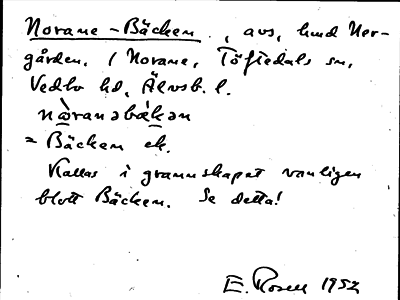 Norane-Bäcken, avs, hmd Nor-
gården, i Norane, Töftedals sn,
Vedbo hd, Älvsb. l.
nòranəbàkən
= Bäcken ek.
Kallas i grannskapet vanligen
blott Bäcken. Se detta!
E. Rosell 1952